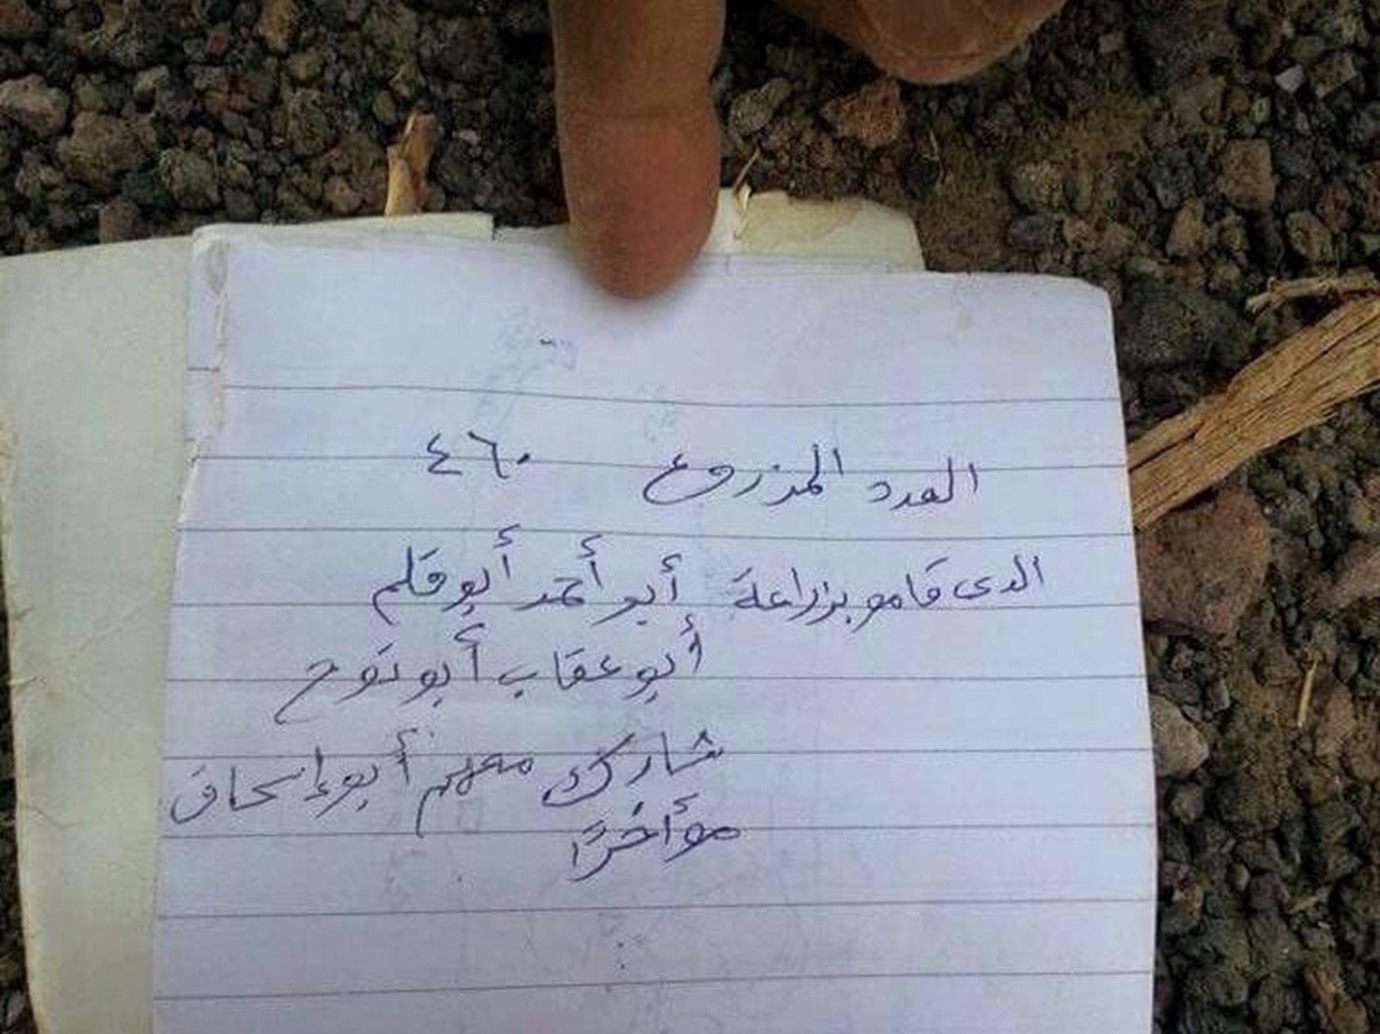 العدد المزروع ٤٦٠
الدى قامو بزراعة أبو أحمد أبو قلم
أبو عقاب أبو نوح
شارك معهم أبو إسحاق
مؤأخرًا